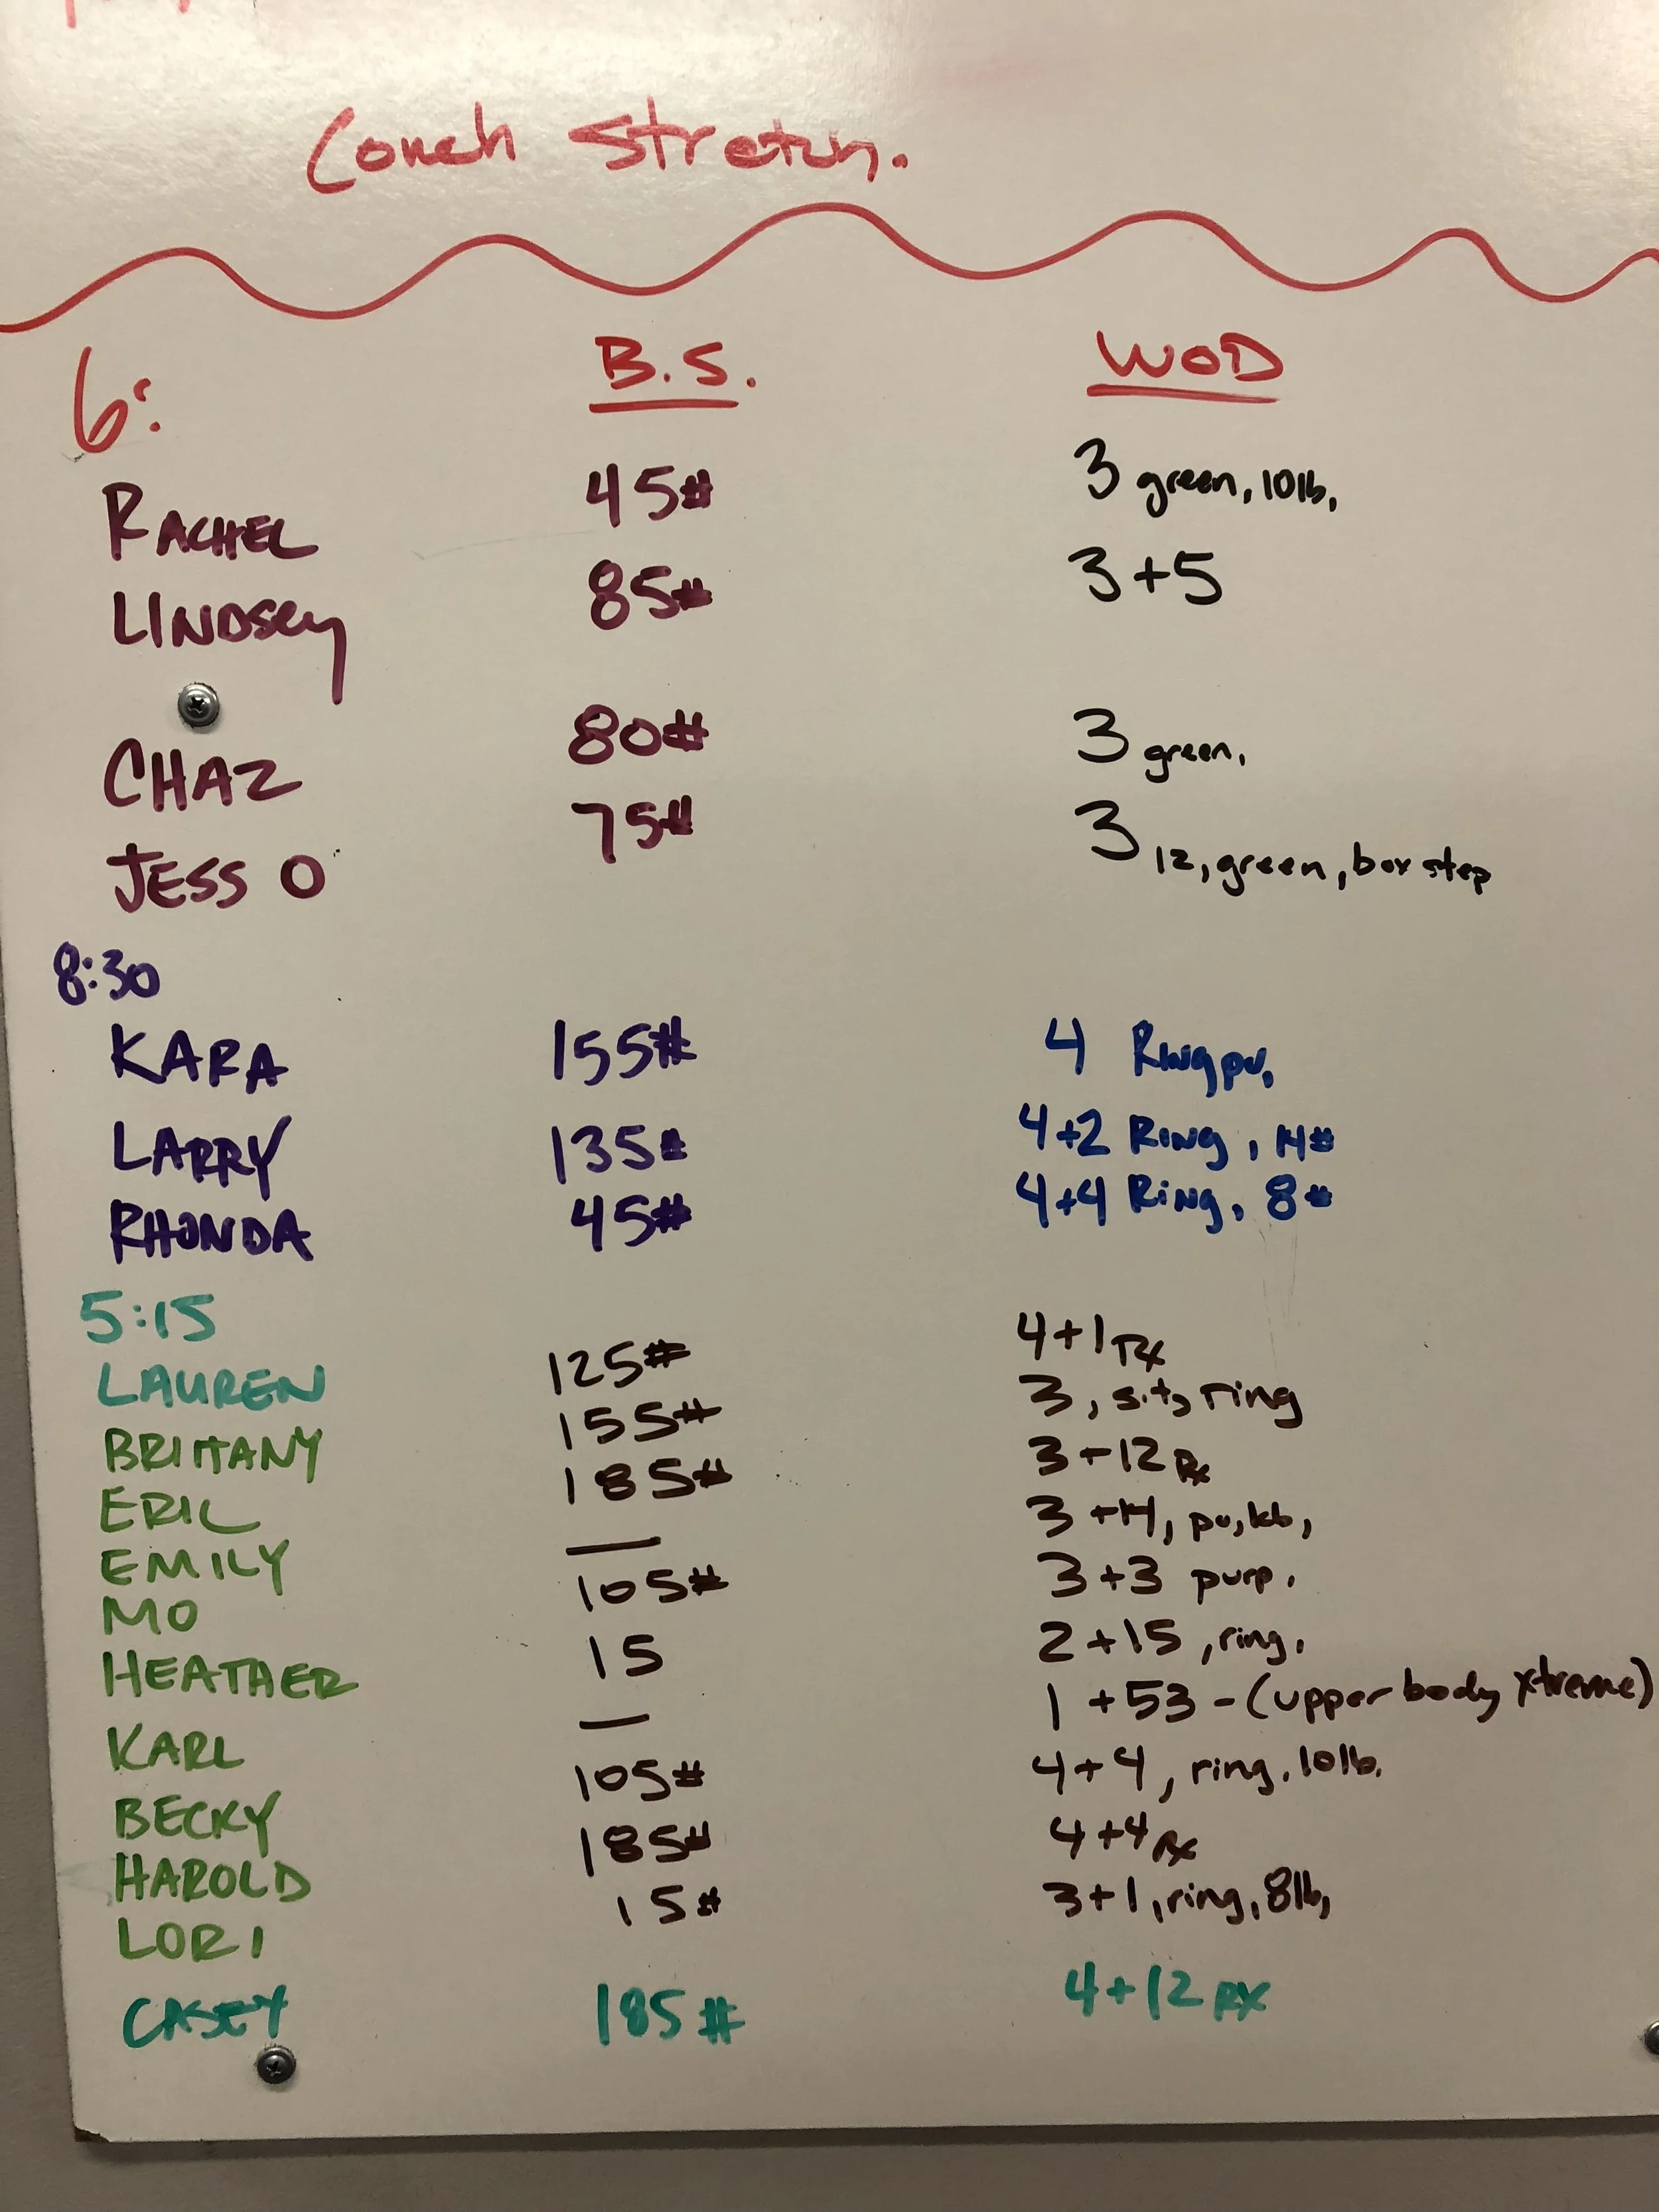 Couch Stretch.
6: B.S. WOD
RACHEL 45# 3 green, 10lb,
LINDSEY 85# 3+5
CHAZ 80# 3 green,
JESS O 75# 3 12, green, box step
8:30
KARA 155# 4 Ring pu,
LARRY 135# 4+2 Ring, 14#
RHONDA 45# 4+4 Ring, 8#
5:15
LAUREN 125# 4+1 RX
BRITTANY 155# 3, sit, ring
ERIC 185# 3+12 Rx
EMILY — 3+14, pu, kb,
MO 105# 3+3 purp.
HEATHER 15 2+15, ring,
KARL — 1+53 - (upper body xtreme)
BECKY 105# 4+4, ring, 10lb.
HAROLD 185# 4+4 Rx
LORI 15# 3+1, ring, 8lb,
CASEY 185# 4+12 RX